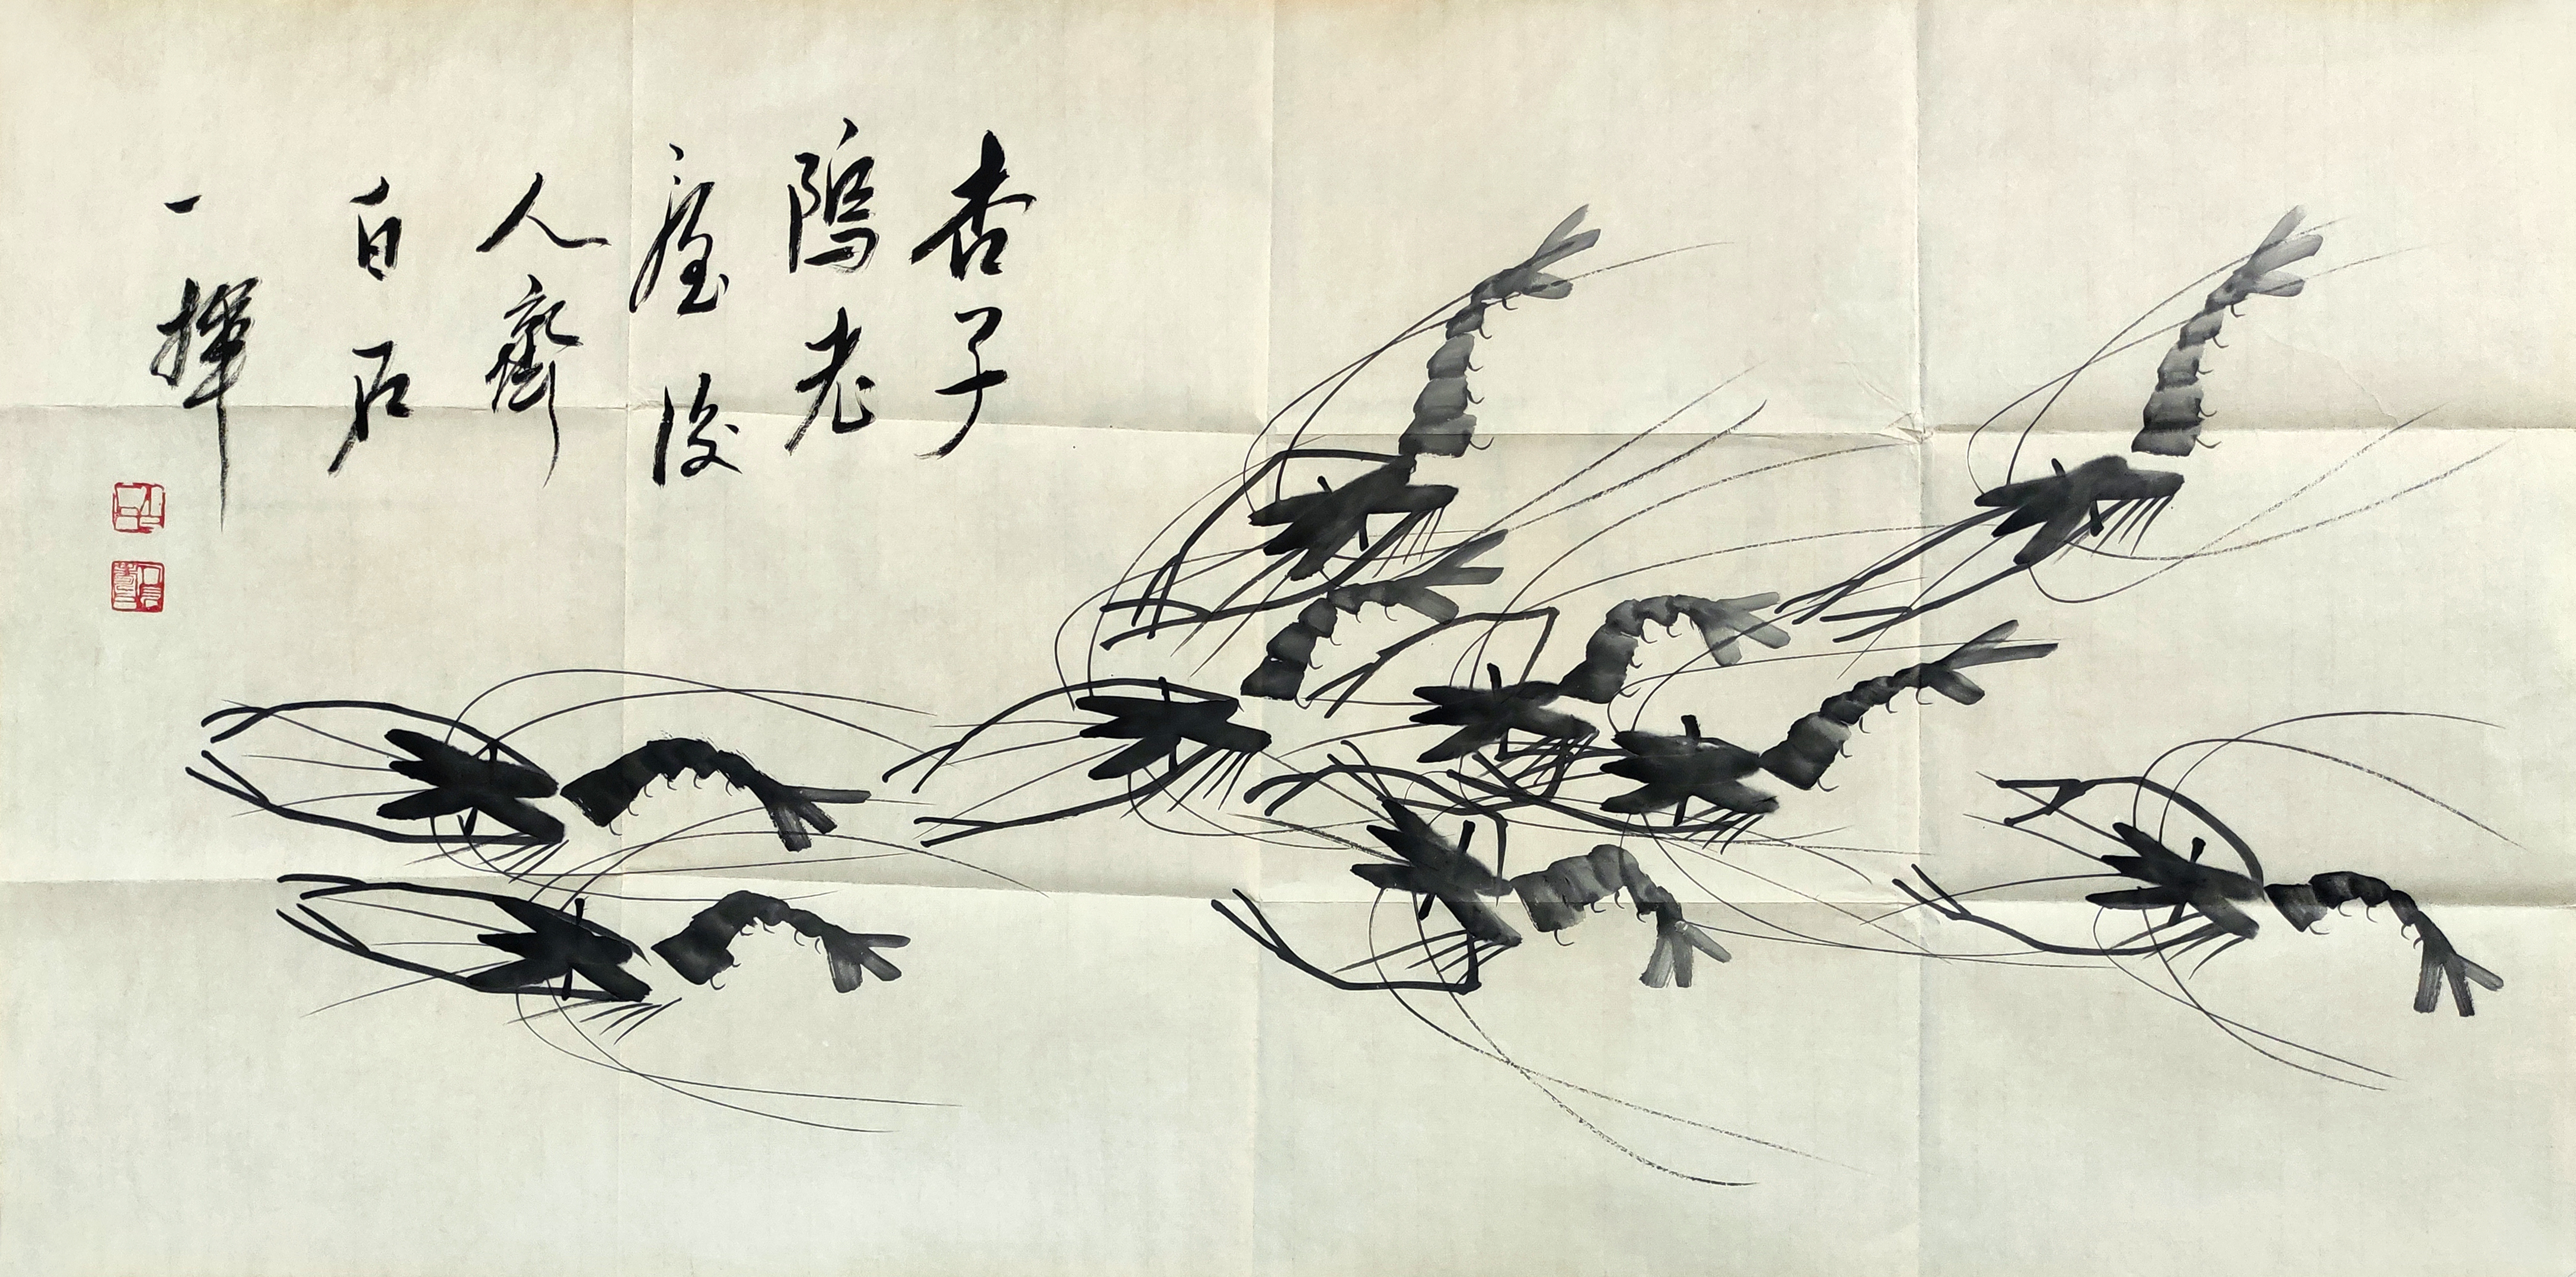 杏子
隖老
屋後
人齊
白石
一揮